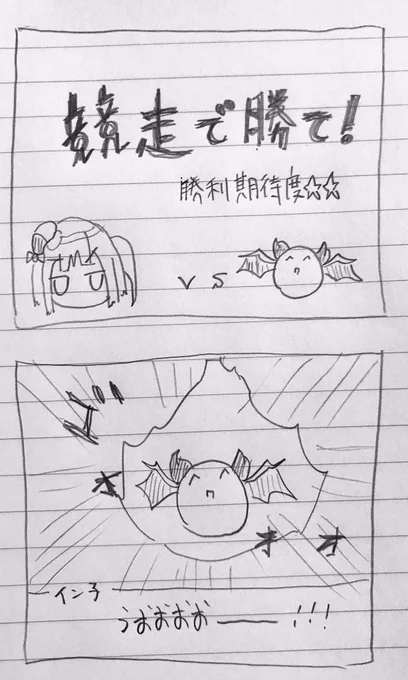 競走で勝て!
勝利期待度☆☆
vs
ゴオオオ
インチ
うおおおお――!!!